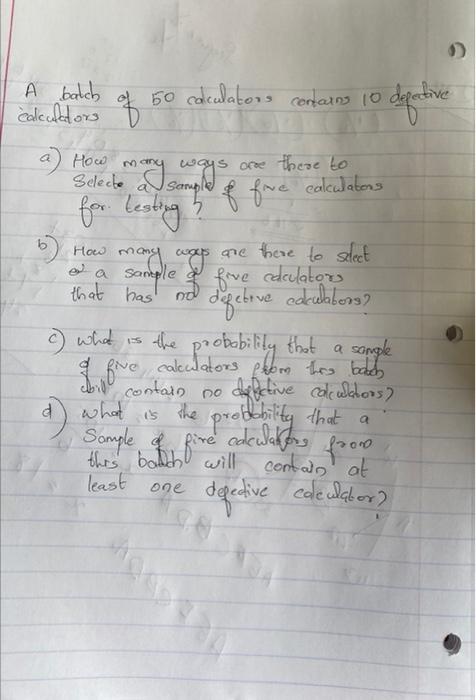 A batch of 50 calculators contains 10 defective
calculators
a) How many ways are there to
Selecte a sample of five calculators
for testing?
b) How many ways are there to select
of a sample of five calculators
that has no defective calculators?
c) what is the probability that a sample
of five calculators from this batch
will contain no defective calculators?
d) what is the probability that a
Sample of five calculators from
this batch will contain at
least one defective calculator?